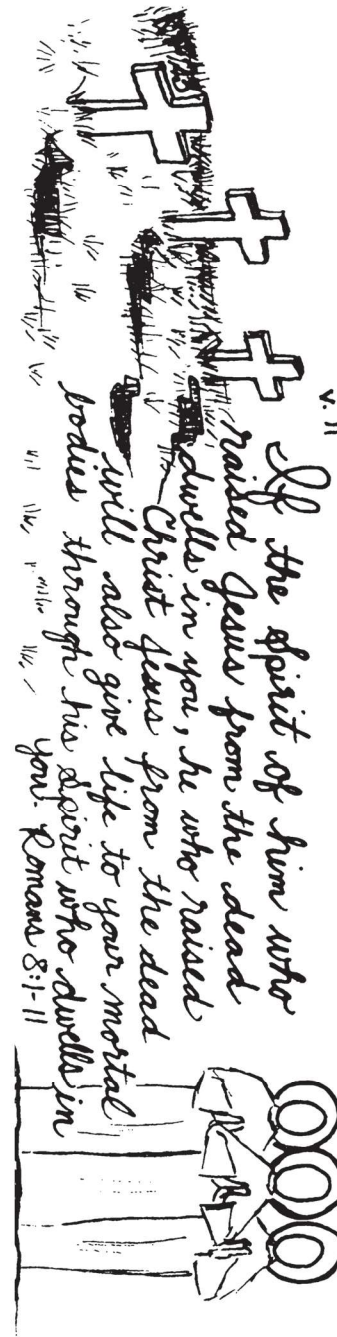 v. 11
If the Spirit of him who
raised Jesus from the dead
dwells in you, he who raised
Christ Jesus from the dead
will also give life to your mortal
bodies through his Spirit who dwells in
you. Romans 8:1-11